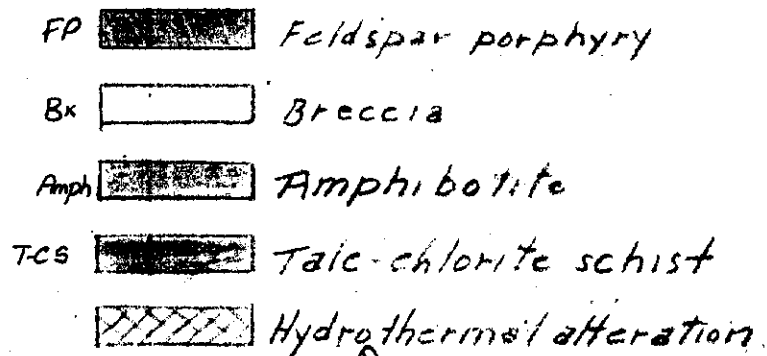 FP Feldspar porphyry
Bx Breccia
Amph Amphibolite
T-CS Talc-chlorite schist
Hydrothermal alteration